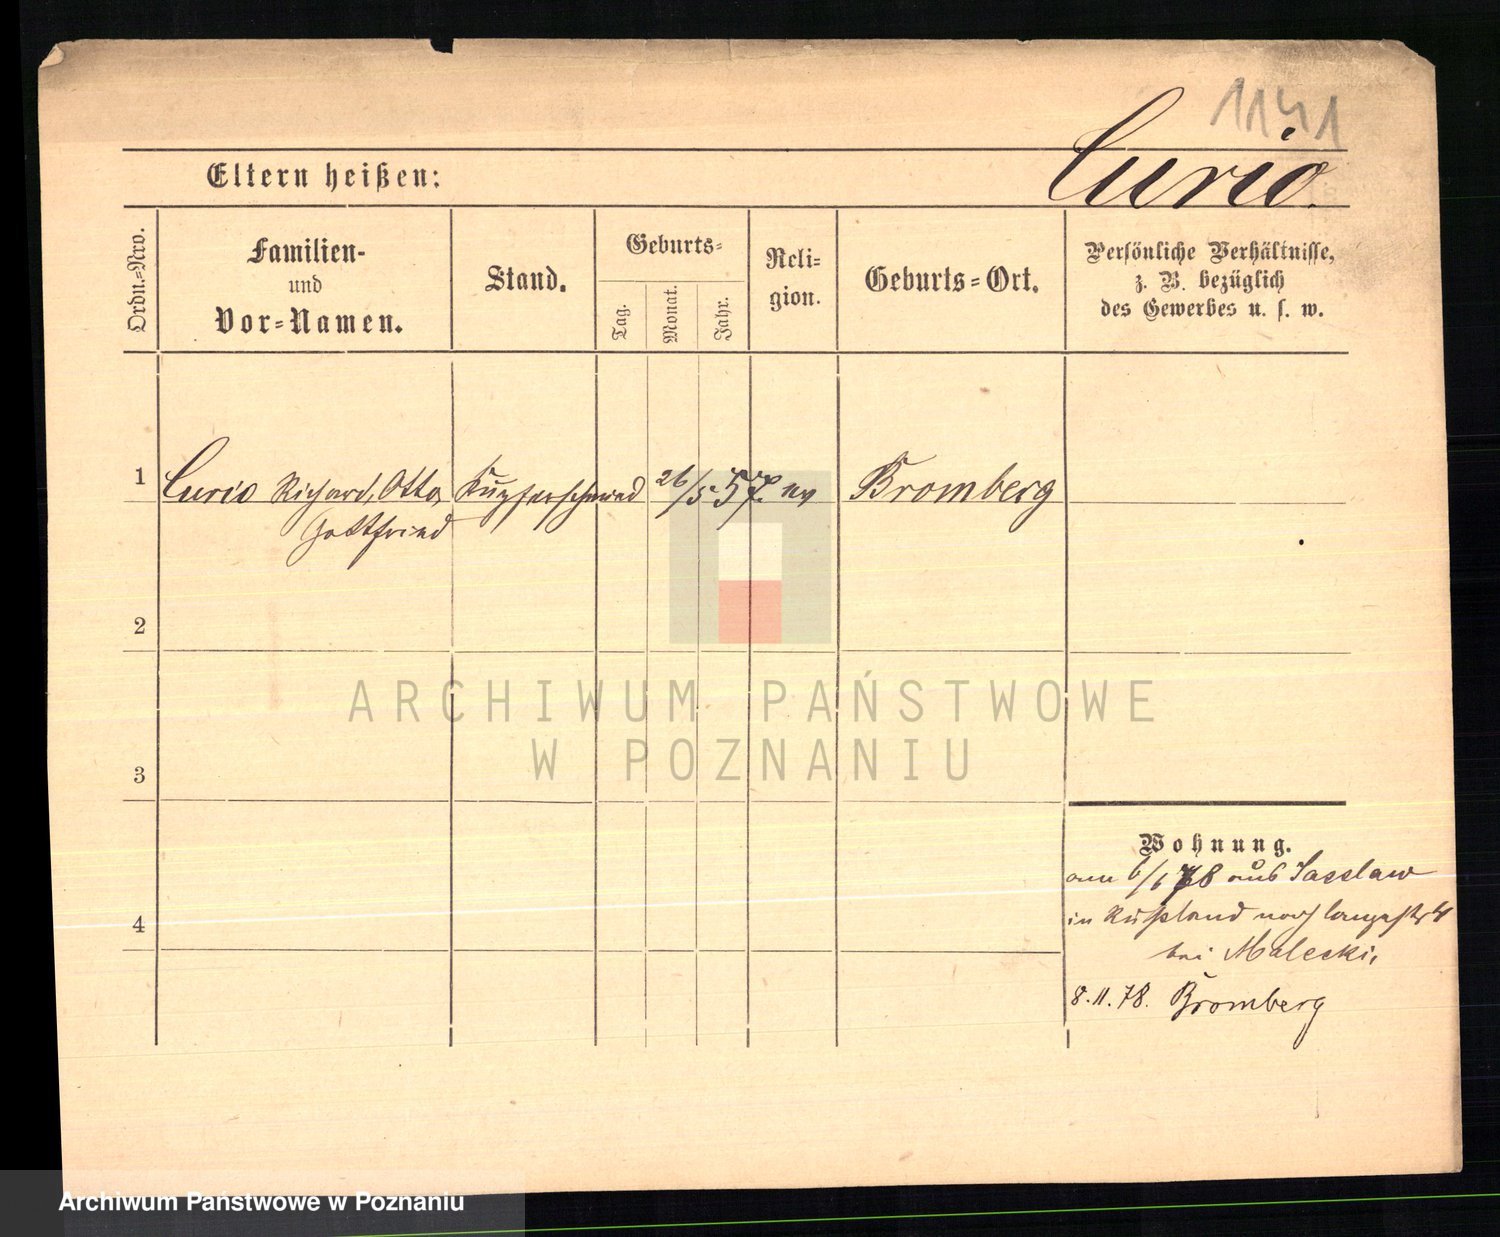 1141
Curio.
Eltern heißen:
Ordn.=Nro.
Familien-
und
Vor=Namen.
Stand.
Geburts=
Tag.
Monat.
Jahr.
Reli=
gion.
Geburts=Ort.
Persönliche Verhältnisse,
z. B. bezüglich
des Gewerbes u. s. w.
1 Curio Richard, Otto, Kupferschmied 26/5 57. ev Bromberg
Gottfried
2
3
4
Wohnung.
am 6/6 78 aus Sasslaw
in Rußland nach Langestr 4
bei Malecki,
8.11.78. Bromberg
ARCHIWUM PAŃSTWOWE
W POZNANIU
Archiwum Państwowe w Poznaniu